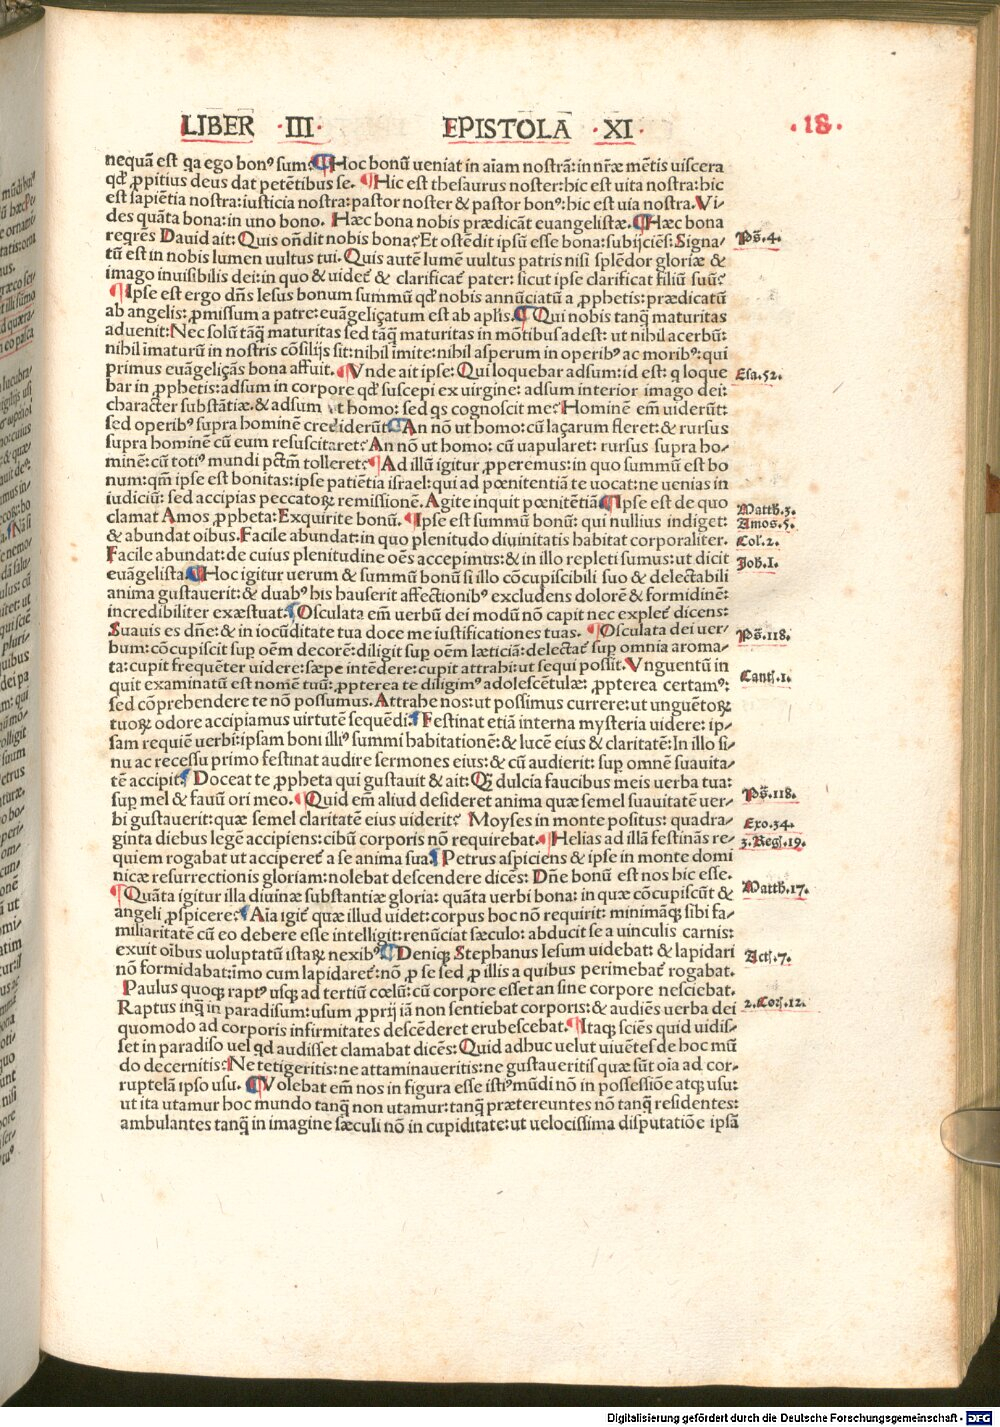 LIBER · III · EPISTOLA · XI · · 18 ·
nequā est qa ego bonꝰ sum? ¶ Hoc bonū ueniat in aīam nostrā: in nr̄æ mētis uiscera
qd̄ ꝓpitius deus dat petētibus se. ¶ Hic est thesaurus noster: hic est uita nostra: hic
est sapiētia nostra: iusticia nostra: pastor noster & pastor bonꝰ: hic est uia nostra. Vi-
des quāta bona: in uno bono. Hæc bona nobis prædicāt euangelistæ. ¶ Hæc bona
reqrēs Dauid ait: Quis ondit nobis bona? Et ostēdit ipsū esse bona: subijciēs: Signa- Ps. 4.
tū est in nobis lumen uultus tui. Quis autē lumē uultus patris nisi splēdor gloriæ &
imago inuisibilis dei: in quo & uidet̄ & clarificat̄ pater: sicut ipse clarificat filiū suū?
¶ Ipse est ergo dn̄s Iesus bonum summū qd̄ nobis annūciatū a ꝓphetis: prædicatū
ab angelis: ꝓmissum a patre: euāgeliçatum est ab apl̄is. ¶ Qui nobis tanq̄ maturitas
aduenit: Nec solū tāq̄ maturitas sed tāq̄ maturitas in mōtibus adest: ut nihil acerbū:
nihil īmaturū in nostris cōsilijs sit: nihil īmite: nihil asperum in operibꝰ ac moribꝰ: qui
primus euāgeliçās bona affuit. ¶ Vnde ait ipse: Qui loquebar adsum: id est: q loque Esa. 52.
bar in ꝓphetis: adsum in corpore qd̄ suscepi ex uirgine: adsum interior imago dei:
character substātiæ. & adsum ut homo: sed qs cognoscit me? Hominē em̄ uiderūt:
sed operibꝰ supra hominē crediderūt. ¶ An nō ut homo: cū laçarum fleret: & rursus
supra hominē cū eum resuscitaret? An nō ut homo: cū uapularet: rursus supra ho-
minē: cū totiꝰ mundi pctm̄ tolleret? ¶ Ad illū igitur ꝓperemus: in quo summū est bo
num: qm̄ ipse est bonitas: ipse patiētia israel: qui ad pœnitentiā te uocat: ne uenias in
iudiciū: sed accipias peccatoꝝ remissionē. Agite inquit pœnitētiā. ¶ Ipse est de quo Matth. 3.
clamat Amos ꝓpheta: Exquirite bonū. ¶ Ipse est summū bonū: qui nullius indiget: Amos. 5.
& abundat oībus. Facile abundat: in quo plenitudo diuinitatis habitat corporaliter. Col. 2.
Facile abundat: de cuius plenitudine oēs accepimus: & in illo repleti sumus: ut dicit Joh. 1.
euāgelista. ¶ Hoc igitur uerum & summū bonū si illo cōcupiscibili suo & delectabili
anima gustauerit: & duabꝰ his hauserit affectionibꝰ excludens dolorē & formidinē:
incredibiliter exæstuat. ¶ Osculata em̄ uerbū dei modū nō capit nec explet̄ dicens:
Suauis es dn̄e: & in iocūditate tua doce me iustificationes tuas. ¶ Osculata dei uer- Ps. 118.
bum: cōcupiscit suꝑ oēm decorē: diligit suꝑ oēm læticiā: delectat̄ suꝑ omnia aroma-
ta: cupit frequēter uidere: sæpe intēdere: cupit attrahi: ut sequi possit. Vnguentū in
quit examinatū est nomē tuū: ꝓpterea te diligimꝰ adolescētulæ: ꝓpterea certamꝰ: Cant. 1.
sed cōprehendere te nō possumus. Attrahe nos: ut possimus currere: ut unguētoꝝ
tuoꝝ odore accipiamus uirtutē sequēdi. ¶ Festinat etiā interna mysteria uidere: ip-
sam requiē uerbi: ipsam boni illiꝰ summi habitationē: & lucē eius & claritatē: In illo si-
nu ac recessu primo festinat audire sermones eius: & cū audierit: suꝑ omnē suauita-
tē accipit. ¶ Doceat te ꝓpheta qui gustauit & ait: Q̄ dulcia faucibus meis uerba tua:
suꝑ mel & fauū ori meo. ¶ Quid em̄ aliud desideret anima quæ semel suauitatē uer- Ps. 118.
bi gustauerit: quæ semel claritatē eius uiderit? Moyses in monte positus: quadra- Exo. 34.
ginta diebus legē accipiens: cibū corporis nō requirebat. ¶ Helias ad illā festinās re- 3. Reg. 19.
quiem rogabat ut acciperet̄ a se anima sua. ¶ Petrus aspiciens & ipse in monte domi
nicæ resurrectionis gloriam: nolebat descendere dicēs: Dn̄e bonū est nos hic esse. Matth. 17.
¶ Quāta igitur illa diuinæ substantiæ gloria: quāta uerbi bona: in quæ cōcupiscūt &
angeli ꝓspicere? ¶ Aīa igit̄ quæ illud uidet: corpus hoc nō requirit: minimaq; sibi fa-
miliaritatē cū eo debere esse intelligit: renūciat sæculo: abducit se a uinculis carnis:
exuit oībus uoluptatū istaꝝ nexibꝰ. ¶ Deniq; Stephanus Iesum uidebat: & lapidari Act. 7.
nō formidabat: īmo cum lapidaret̄: nō ꝓ se sed ꝓ illis a quibus perimebat̄ rogabat.
Paulus quoq; raptꝰ usq; ad tertiū cœlū: cū corpore esset an sine corpore nesciebat.
Raptus inq̄ in paradisum: usum ꝓprij iā non sentiebat corporis: & audiēs uerba dei 2. Cor. 12.
quomodo ad corporis infirmitates descēderet erubescebat. ¶ Itaq; sciēs quid uidis-
set in paradiso uel qd audisset clamabat dicēs: Quid adhuc uelut uiuētes de hoc mū
do decernitis? Ne tetigeritis: ne attaminaueritis: ne gustaueritis quæ sūt oīa ad cor-
ruptelā ipso usu. ¶ Volebat em̄ nos in figura esse istiꝰ mūdi nō in possessiōe atq; usu:
ut ita utamur hoc mundo tanq̄ non utamur: tanq̄ prætereuntes nō tanq̄ residentes:
ambulantes tanq̄ in imagine sæculi nō in cupiditate: ut uelocissima disputatiōe ipsā
Digitalisierung gefördert durch die Deutsche Forschungsgemeinschaft - DFG